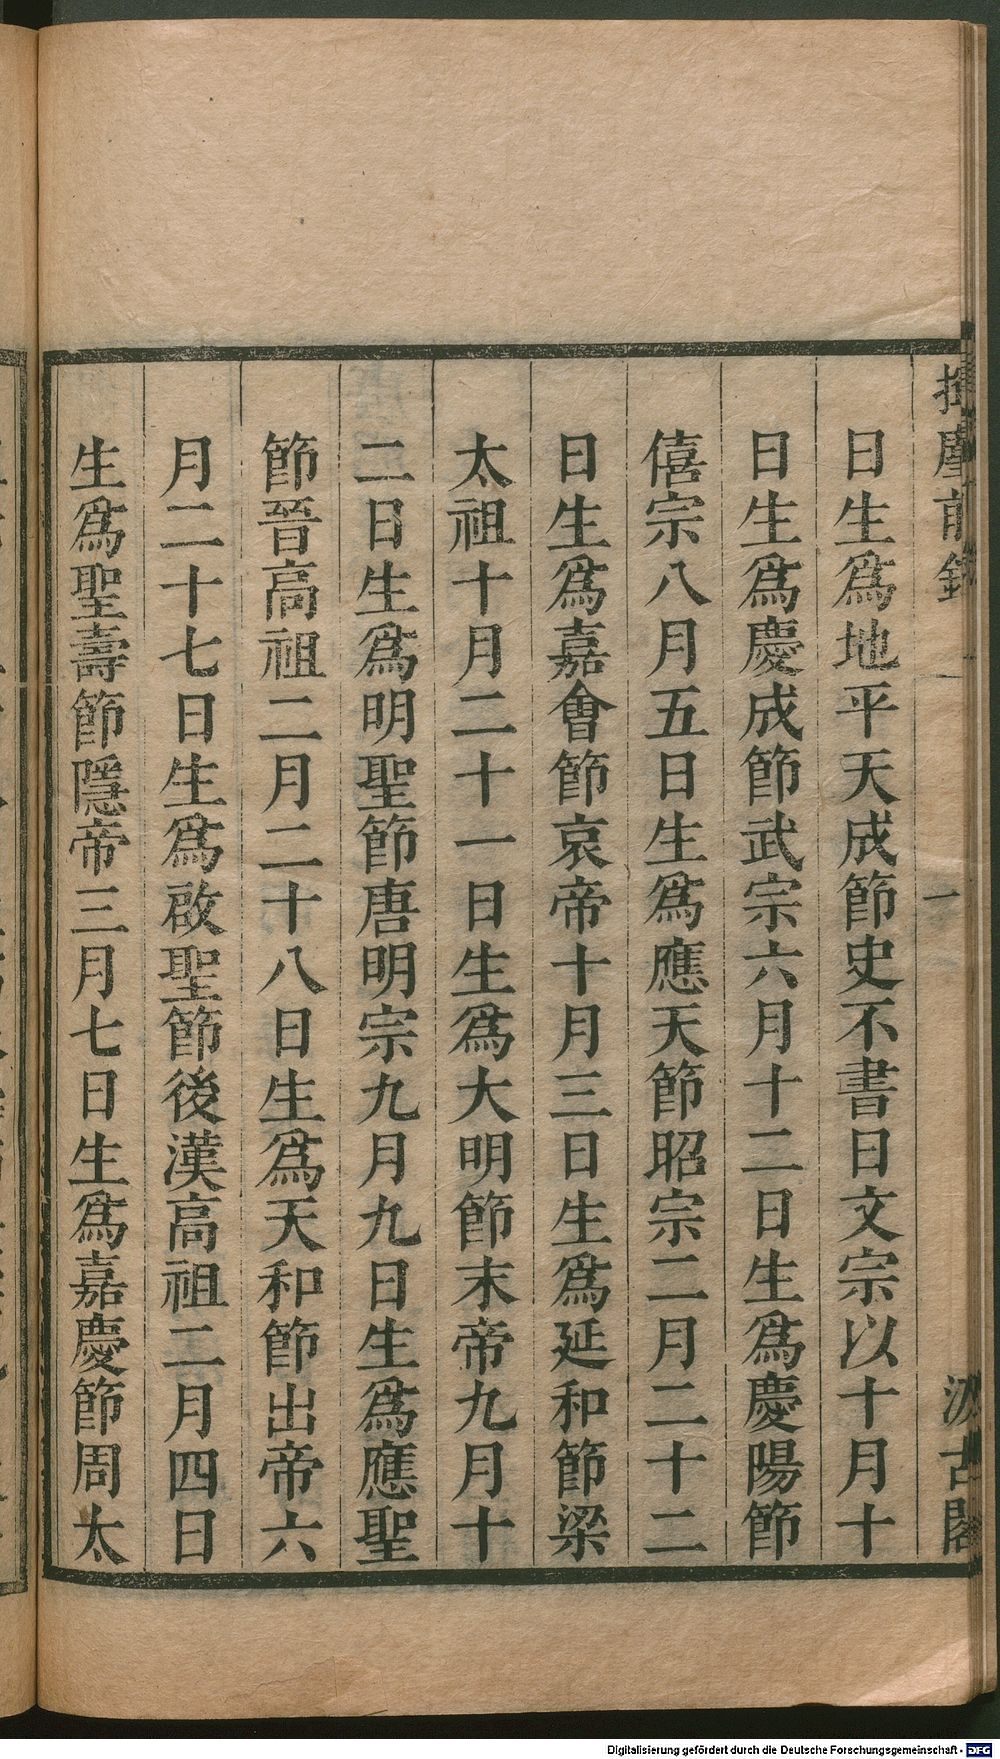 揮麈前錄
一
汲古閣
日生爲地平天成節史不書日文宗以十月十
日生爲慶成節武宗六月十二日生爲慶陽節
僖宗八月五日生爲應天節昭宗二月二十二
日生爲嘉會節哀帝十月三日生爲延和節梁
太祖十月二十一日生爲大明節末帝九月十
二日生爲明聖節唐明宗九月九日生爲應聖
節晉高祖二月二十八日生爲天和節出帝六
月二十七日生爲啟聖節後漢高祖二月四日
生爲聖壽節隱帝三月七日生爲嘉慶節周太
Digitalisierung gefördert durch die Deutsche Forschungsgemeinschaft - DFG